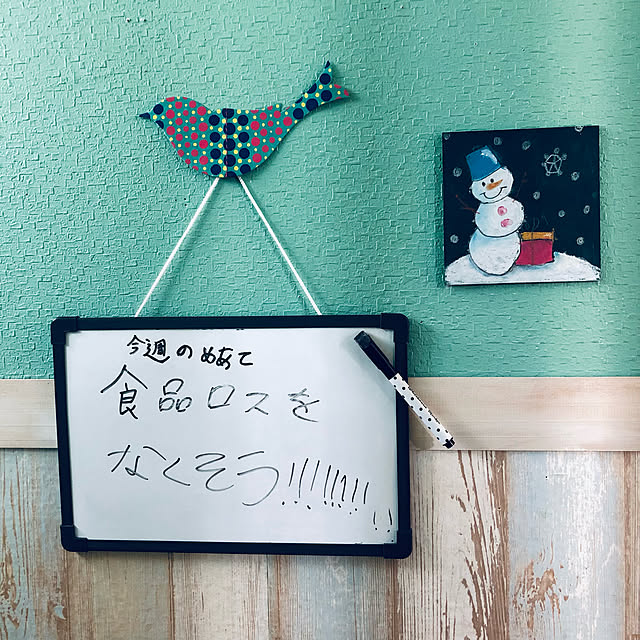 今週のめあて
食品ロスを
なくそう!!!!!!!!!!